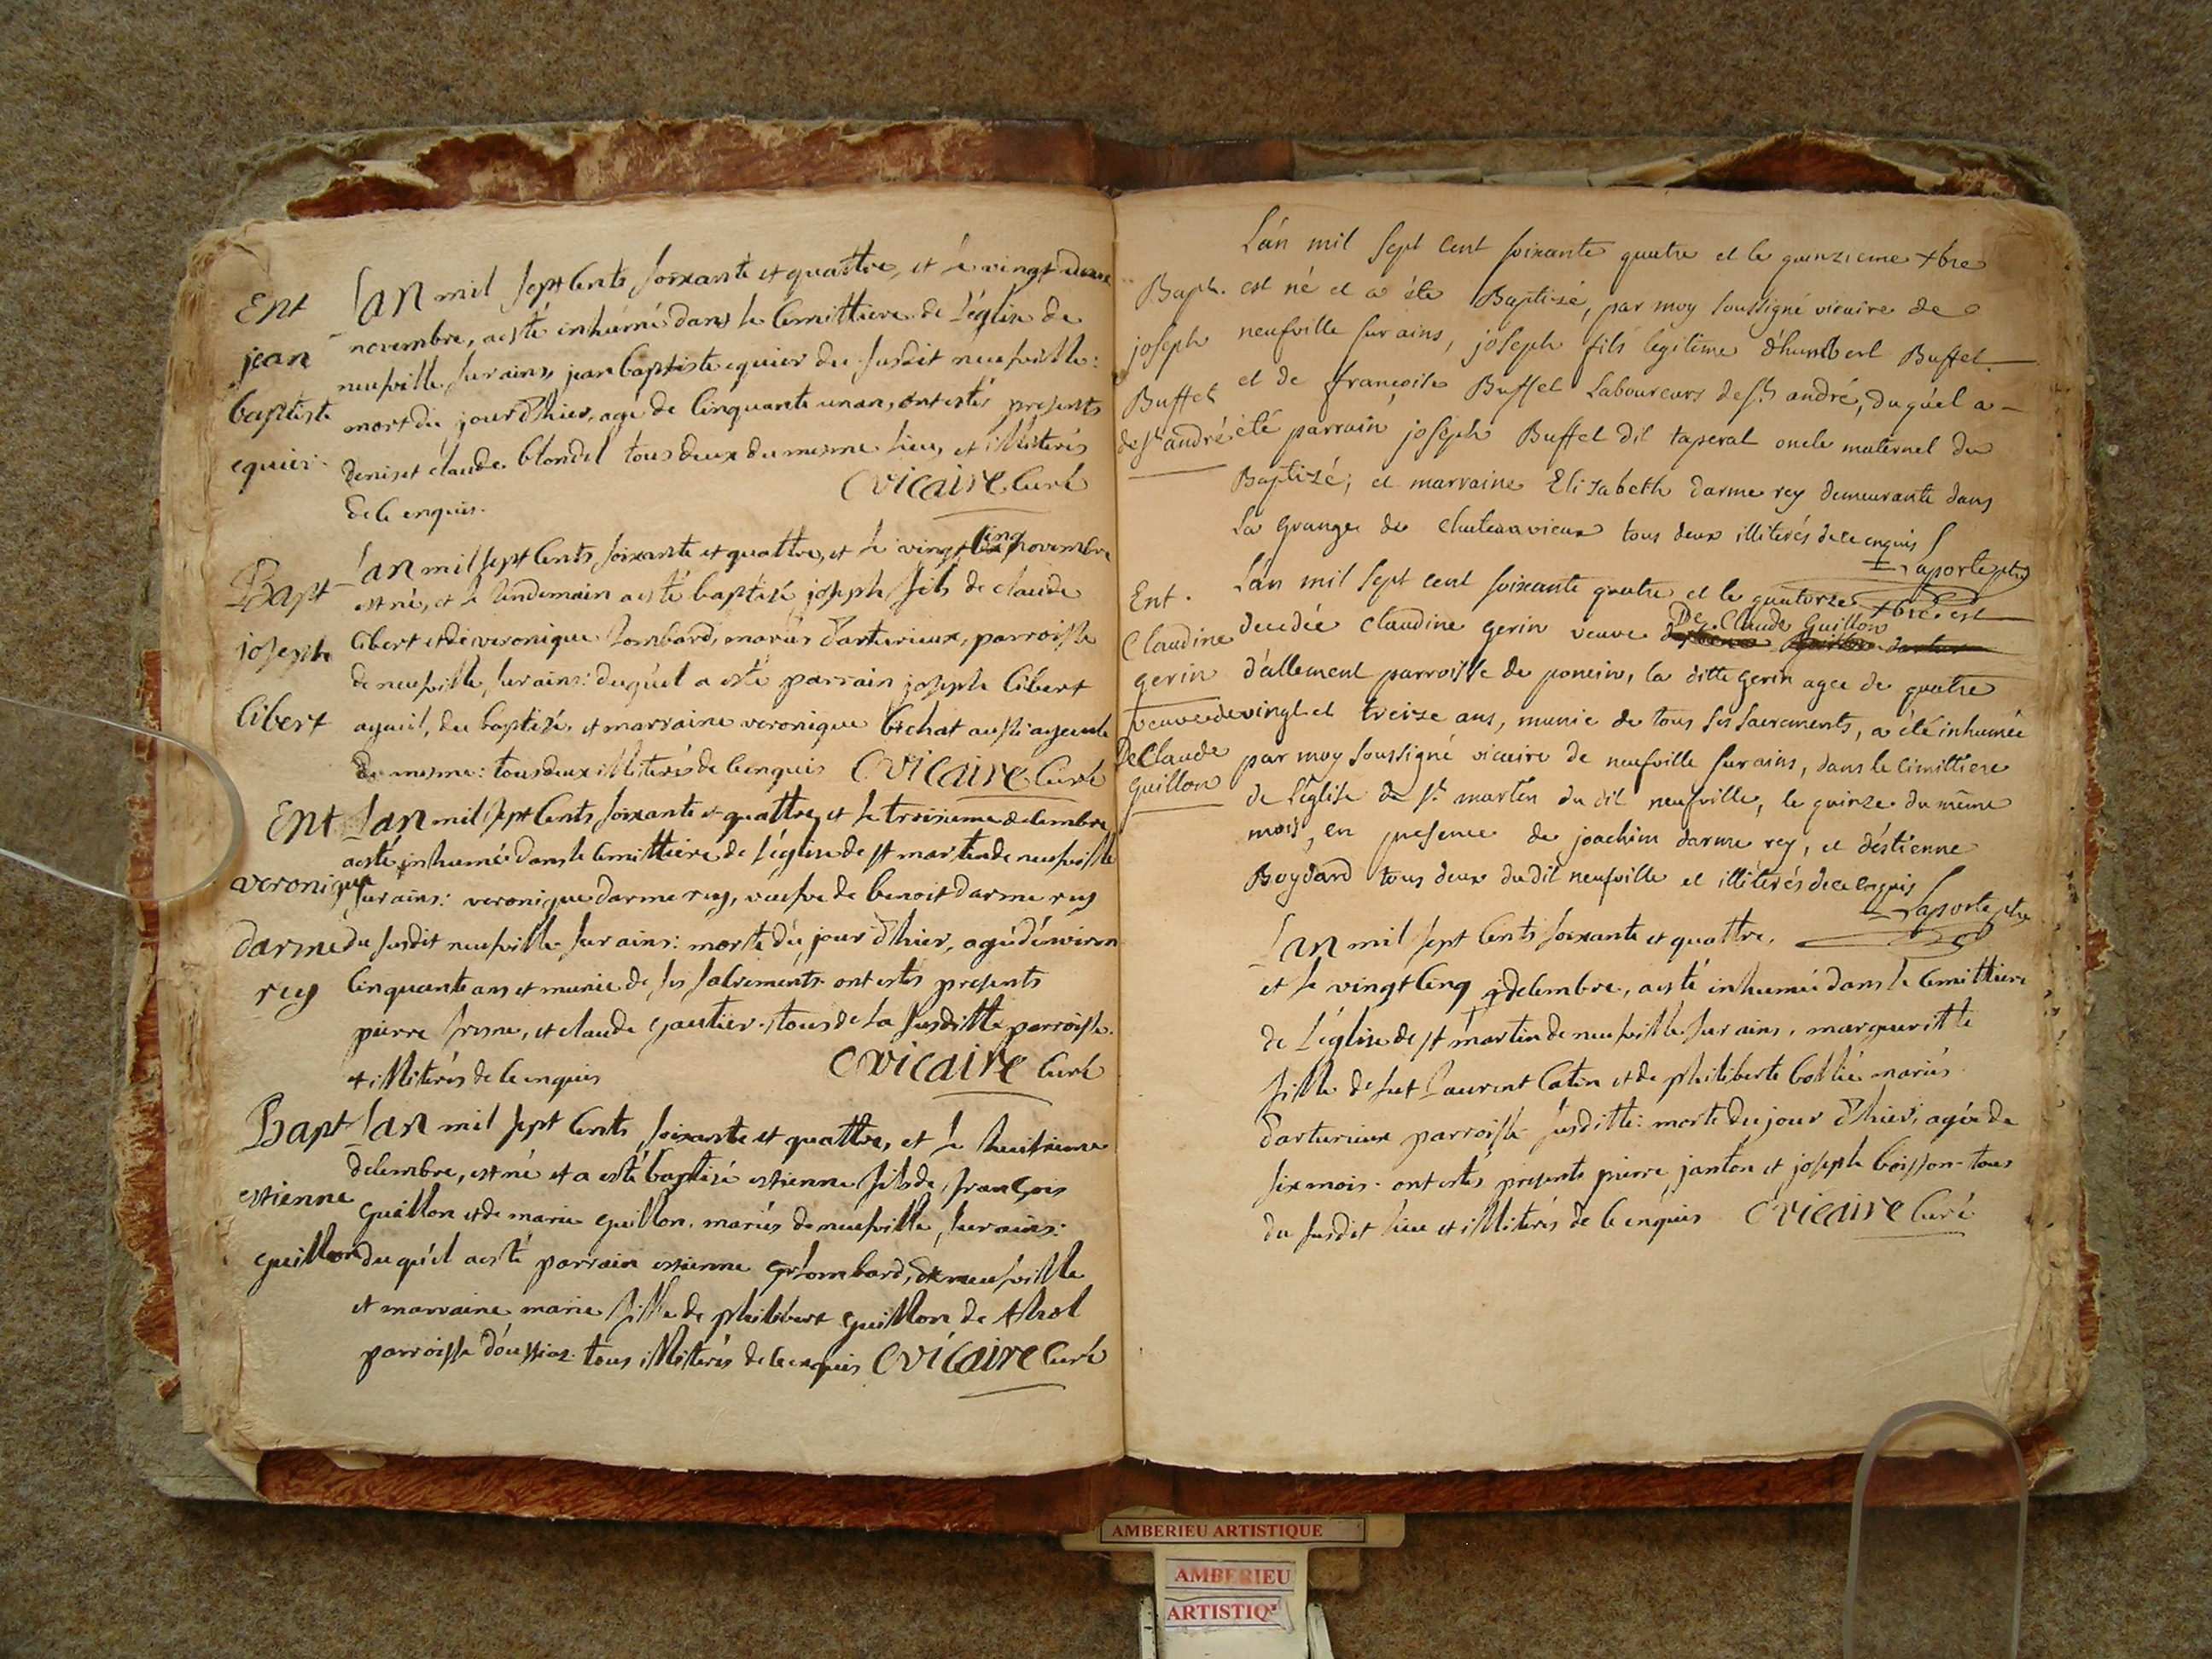 Ent
jean
baptiste
equier.
Lan mil sept Cents soixante et quattre, et le vingt deux
novembre, a esté inhumé dans le Cemittiere de L'église de
neufville sur ains, jean baptiste equier du susdit neufville:
mort du jour d'hier, agé de Cinquante un an, ont estés presents
denis et claude blondel tous deux du mesme lieu, et illiterés
de Ce enquis.
C vicaire Curé
Bapt
joseph
Cibert
Lan mil sept Cents soixante et quattre, et le vingt Cinq novembre
est né, et le lendemain a esté baptisé joseph fils de claude
Cibert et de veronique Lombard, mariés d'arturieux, parroisse
de neufville sur ains: duquel a esté parrain joseph Cibert
ayeul, du baptisé, et marraine veronique bichat aussi ayeule
du mesme: tous deux illiterés de Ce enquis C vicaire Curé
Ent
veronique
darme
rey
Lan mil sept Cents soixante et quattre, et le troisieme decembre
a esté inhumée dans le Cemittiere de L'église de st martin de neufville
sur ains: veronique darme rey, veufve de benoit darme rey
du susdit neufville sur ains: morte du jour d'hier, agé d'environ
Cinquante ans et munie de ses sacrements ont estés presents
pierre fresne, et claude gautier. tous de La susditte parroisse.
et illiterés de Ce enquis
C vicaire Curé
Bapt
estienne
guillon
Lan mil sept Cents soixante et quattre, et le huitieme
decembre, est né et a esté baptisé estienne fils de françois
guillon et de marie guillon. mariés de neufville, sur ains:
du quel a esté parrain estienne grombard, de neufville
et marraine marie fille de philibert guillon de
parroisse d'oussiaz. tous illiterés de Ce enquis C vicaire Curé
Bapt.
joseph
Buffet
de st andré
L'an mil sept cent soixante quatre et le quinzieme xbre
est né et a été Baptisé, par moy soussigné vicaire de
neufville sur ains, joseph fils legitime d'humbert Buffet
et de françoise Buffet Laboureurs de st andré, duquel a
été parrain joseph Buffet dit taperal oncle maternel du
Baptisé; et marraine Elizabeth darme rey demeurante dans
la grange de chateauvieux tous deux illiterés de ce enquis
Laporte ptre
Ent.
Claudine
gerin
veuve de
De Claude
Guillon
L'an mil sept cent soixante quatre et le quatorze xbre est
decedée Claudine gerin veuve De Claude Guillon
d'allement parroisse de poncin, la ditte gerin agee de quatre
vingt et treize ans, munie de tous ses sacrements, a été inhumée
par moy soussigné vicaire de neufville sur ains, dans le cimittiere
de L'église de st martin du dit neufville, le quinze du même
mois, en presence de joachim darme rey, et d'éstienne
Boydard tous deux du dit neufville et illiterés de ce enquis
Laporte ptre
Lan mil sept Cents soixante et quattre,
et le vingt Cinq decembre, a esté inhumée dans le Cemittiere
de L'église de st martin de neufville sur ains, margueritte
fille de fut Laurent Catin et de philiberte bollié mariés
d'arturieux parroisse susditte: morte du jour d'hier, agée de
six mois. ont estés presents pierre janton et joseph boisson. tous
du susdit lieu et illiterés de Ce enquis C vicaire Curé
AMBERIEU ARTISTIQUE
AMBERIEU
ARTISTIQ